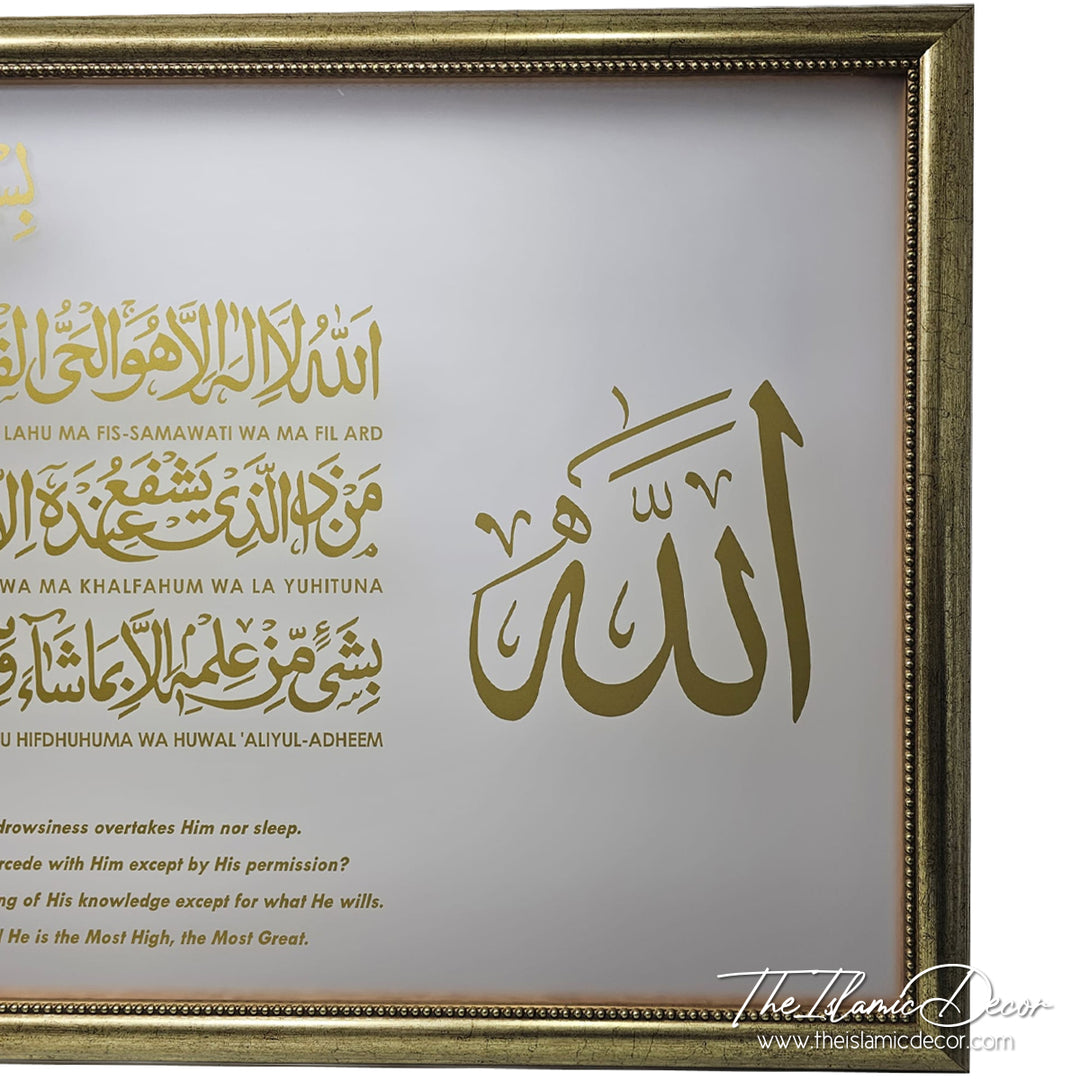 اللّٰهُ لَا إِلٰهَ إِلَّا هُوَ الْحَىُّ
LAHU MA FIS-SAMAWATI WA MA FIL ARD
مَنْ ذَا الَّذِى يَشْفَعُ عِنْدَهُ
WA MA KHALFAHUM WA LA YUHITUNA
بِشَىْءٍ مِّنْ عِلْمِهِ إِلَّا بِمَا شَآءَ
HIFDHUHUMA WA HUWAL 'ALIYUL-ADHEEM
اللّٰهُ
drowsiness overtakes Him nor sleep.
with Him except by His permission?
of His knowledge except for what He wills.
He is the Most High, the Most Great.
TheIslamicDecor
www.theislamicdecor.com